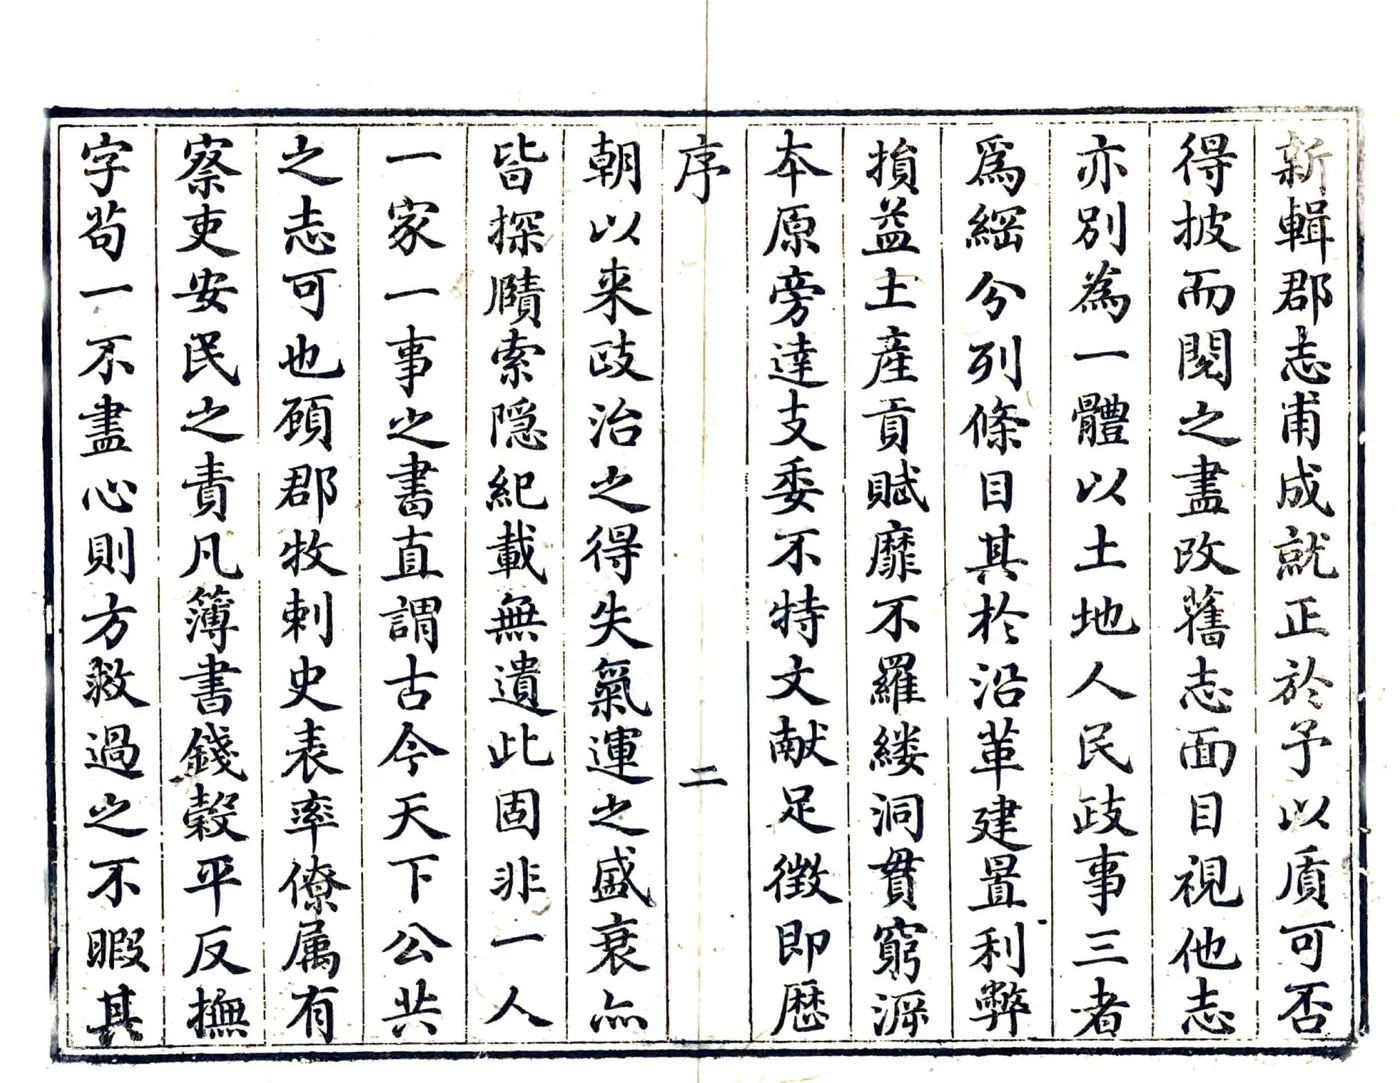 新輯郡志甫成就正於予以質可否
得披而閱之盡改舊志面目視他志
亦別為一體以土地人民政事三者
爲綱分列條目其於沿革建置利弊
損益土產貢賦靡不羅縷洞貫窮源
本原旁達支委不特文献足徵即歷
序
二
朝以来政治之得失氣運之盛衰亦
皆探賾索隠紀載無遺此固非一人
一家一事之書直謂古今天下公共
之志可也顧郡牧刺史表率僚属有
察吏安民之責凡簿書錢穀平反撫
字苟一不盡心則方救過之不暇其